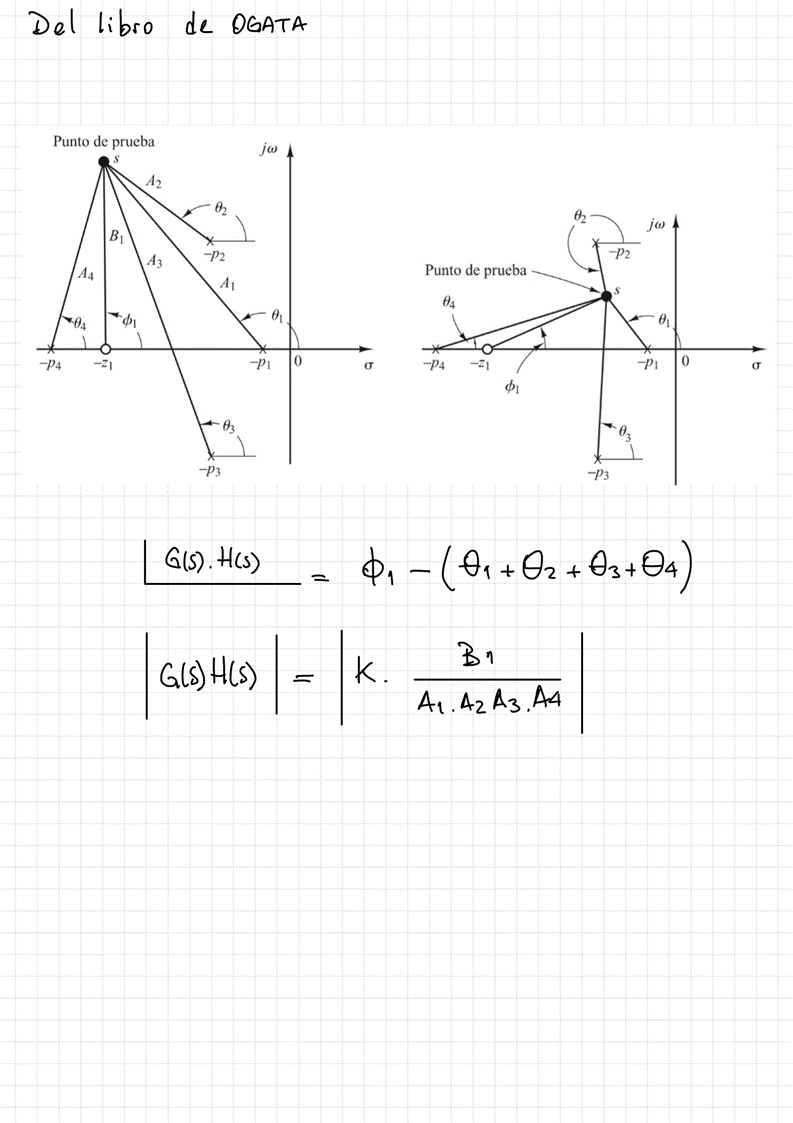 Del libro de OGATA
Punto de prueba
s
jω
A₂
θ₂
B₁
−p₂
A₃
A₄
A₁
θ₄
ϕ₁
θ₁
−p₄
−z₁
−p₁
0
σ
θ₃
−p₃
θ₂
jω
−p₂
Punto de prueba
s
θ₄
θ₁
−p₄
−z₁
−p₁
0
σ
ϕ₁
θ₃
−p₃
G(s).H(s) = ϕ₁ − (θ₁ + θ₂ + θ₃ + θ₄)
|G(s)H(s)| = |K. B₁ / A₁.A₂ A₃.A₄|